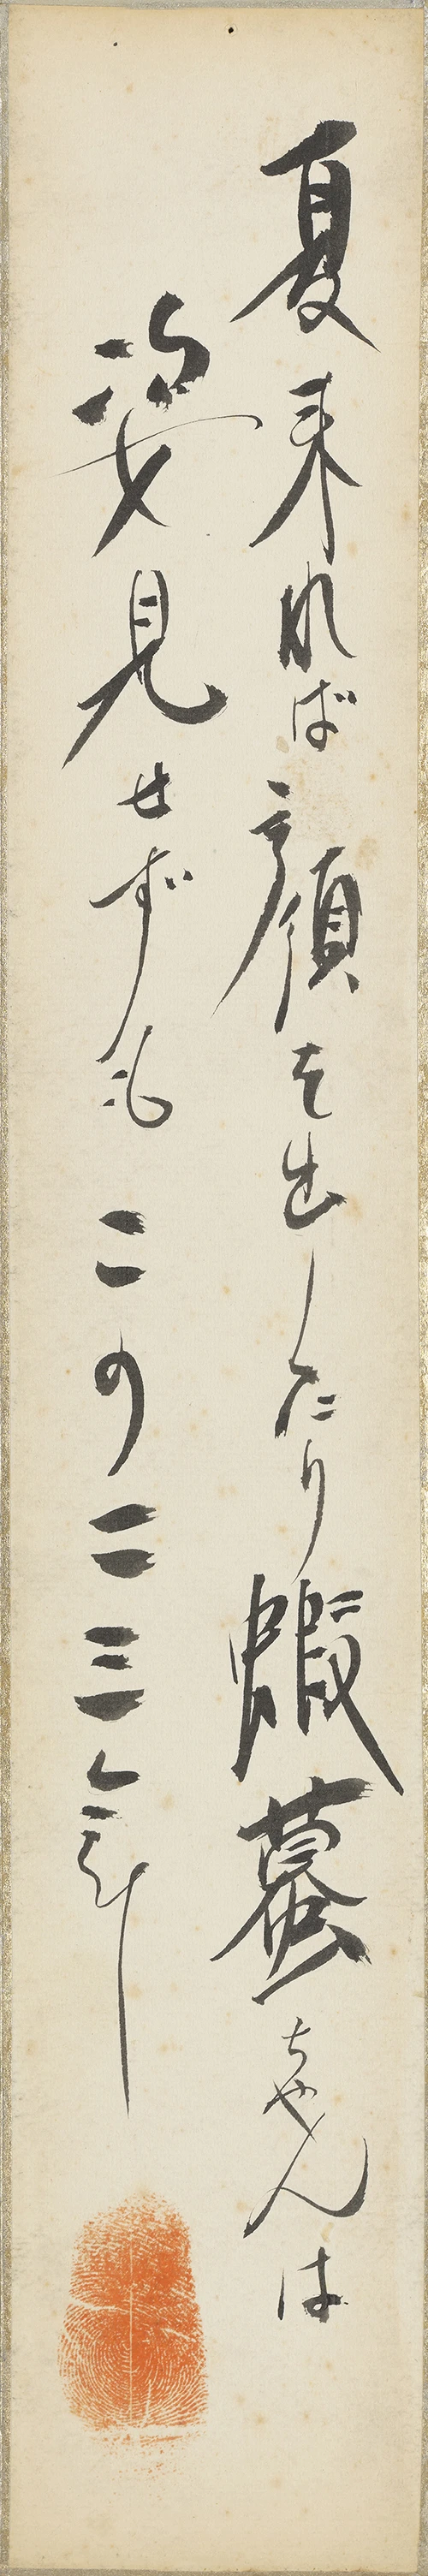 夏来れば顔を出したり蝦蟇ちやんは
姿見せずもこの二三年